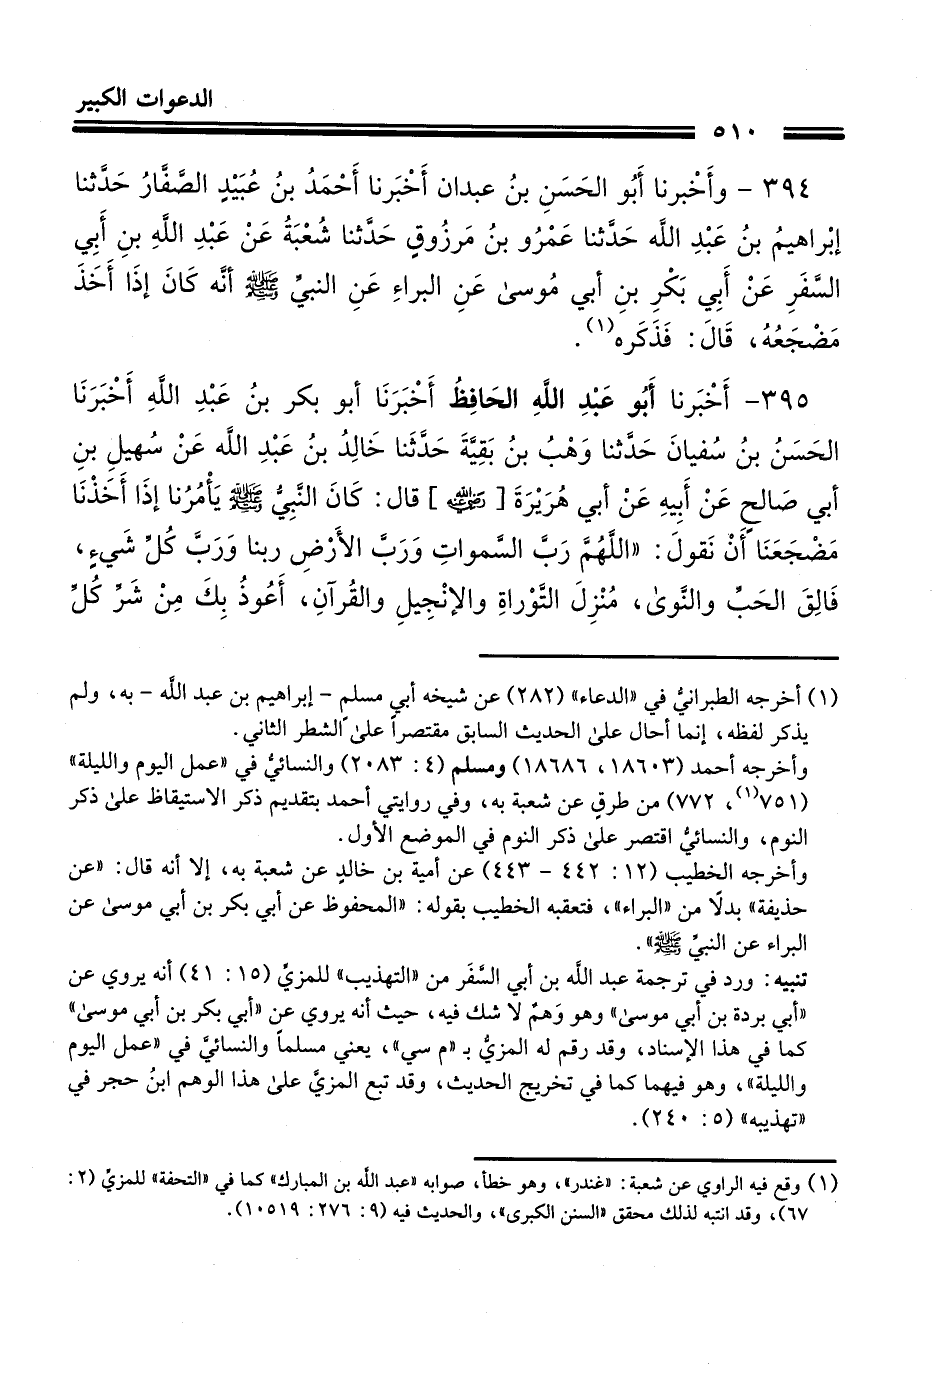 الدعوات الكبير
٥١٠
٣٩٤ - وأَخْبرنا أَبُو الحَسَنِ بنُ عبدان أَخْبَرنا أَحْمَدُ بنُ عُبَيْدٍ الصَّفَّارُ حَدَّثنا
إبْراهيمُ بنُ عَبْدِ اللَّه حَدَّثنا عَمْرُو بنُ مَرزوقٍ حَدَّثنا شُعْبَةُ عَنْ عَبْدِ اللَّهِ بنِ أَبي
السَّفَرِ عَنْ أَبِي بَكْرِ بنِ أبي مُوسىٰ عَنِ البراءِ عَنِ النبيِّ ﷺ أنَّه كَانَ إذَا أَخَذَ
مَضْجَعُهُ، قَالَ: فَذَكَره(١).
٣٩٥- أَخْبَرنا أَبُو عَبْدِ اللَّهِ الحَافِظُ أَخْبَرَنَا أبو بكر بنُ عَبْدِ اللَّهِ أَخْبَرَنَا
الحَسَنُ بنُ سُفيانَ حَدَّثنا وَهْبُ بنُ بَقِيَّةَ حَدَّثَنا خَالِدُ بنُ عَبْدِ اللَّه عَنْ سُهيلِ بنِ
أبي صَالحٍ عَنْ أَبِيهِ عَنْ أبي هُرَيْرَةَ [ رضي الله عنه ] قال: كَانَ النَّبِيُّ ﷺ يَأْمُرُنا إذَا أَخَذْنَا
مَضْجَعَنَا أَنْ نَقولَ: «اللَّهُمَّ رَبَّ السَّمواتِ وَرَبَّ الأَرْضِ ربنا وَرَبَّ كُلِّ شَيءٍ،
فَالِقَ الحَبِّ والنَّوىٰ، مُنْزِلَ التَّوْراةِ والإنْجيلِ والقُرآنِ، أَعُوذُ بِكَ مِنْ شَرِّ كُلِّ
(١) أخرجه الطبرانيُّ في «الدعاء» (٢٨٢) عن شيخه أبي مسلمٍ - إبراهيم بن عبد اللَّه - به، ولم
يذكر لفظه، إنما أحال علىٰ الحديث السابق مقتصراً علىٰ الشطر الثاني.
وأخرجه أحمد (١٨٦٠٣، ١٨٦٨٦) ومسلم (٤: ٢٠٨٣) والنسائيُّ في «عمل اليوم والليلة»
(٧٥١(١)، ٧٧٢) من طرقٍ عن شعبة به، وفي روايتي أحمد بتقديم ذكر الاستيقاظ علىٰ ذكر
النوم، والنسائيُّ اقتصر علىٰ ذكر النوم في الموضع الأول.
وأخرجه الخطيب (١٢: ٤٤٢ - ٤٤٣) عن أمية بن خالدٍ عن شعبة به، إلا أنه قال: «عن
حذيفة» بدلًا من «البراء»، فتعقبه الخطيب بقوله: «المحفوظ عن أبي بكر بن أبي موسىٰ عن
البراء عن النبيِّ ﷺ».
تنبيه: ورد في ترجمة عبد اللَّه بن أبي السَّفَر من «التهذيب» للمزيِّ (١٥: ٤١) أنه يروي عن
«أبي بردة بن أبي موسىٰ» وهو وَهمٌ لا شك فيه، حيث أنه يروي عن «أبي بكر بن أبي موسىٰ»
كما في هذا الإسناد، وقد رقم له المزيُّ بـ «م سي»، يعني مسلماً والنسائيَّ في «عمل اليوم
والليلة»، وهو فيهما كما في تخريج الحديث، وقد تبع المزيَّ علىٰ هذا الوهم ابنُ حجر في
«تهذيبه» (٥: ٢٤٠).
(١) وقع فيه الراوي عن شعبة: «غندر»، وهو خطأ، صوابه «عبد اللَّه بن المبارك» كما في «التحفة» للمزيِّ (٢:
٦٧)، وقد انتبه لذلك محقق «السنن الكبرى»، والحديث فيه (٩: ٢٧٦: ١٠٥١٩).